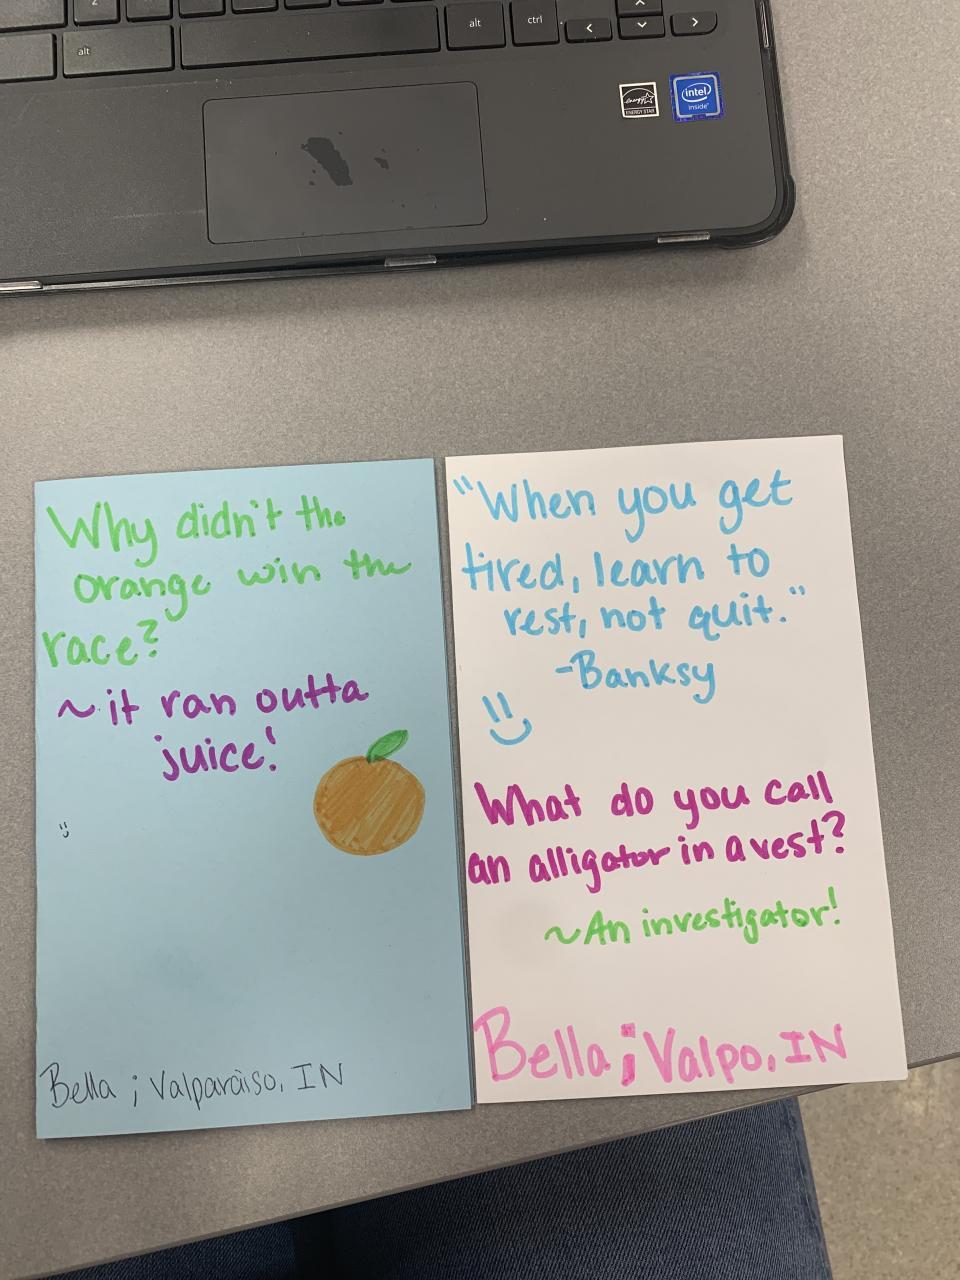 alt
ctrl
alt
energy
ENERGY STAR
intel
inside
Why didn't the
orange win the
race?
~it ran outta
juice!
Bella ; Valparaiso, IN
"When you get
tired, learn to
rest, not quit."
-Banksy
What do you call
an alligator in a vest?
~An investigator!
Bella ; Valpo, IN